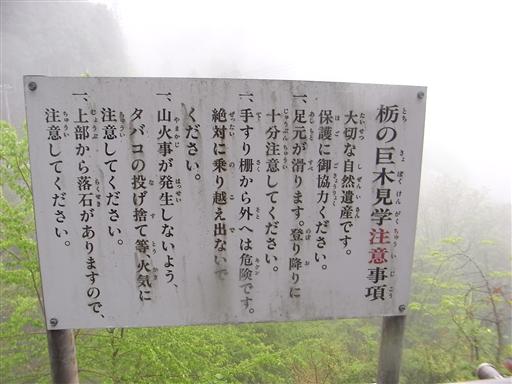 栃の巨木見学注意事項
大切な自然遺産です。
保護に御協力ください。
一、足元が滑ります。登り降りに
十分注意してください。
一、手すり柵から外へは危険です。
絶対に乗り越え出ないで
ください。
一、山火事が発生しないよう、
タバコの投げ捨て等、火気に
注意してください。
一、上部から落石がありますので、
注意してください。